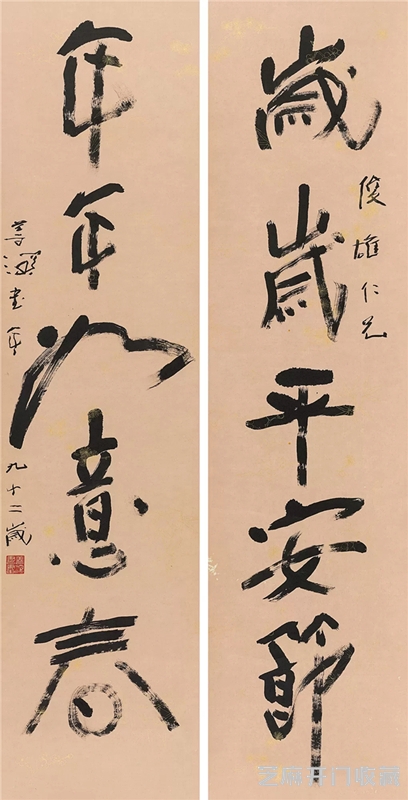 歲歲平安節
俊雄仁兄
年年如意春
書年九十二歲
芝麻开门收藏